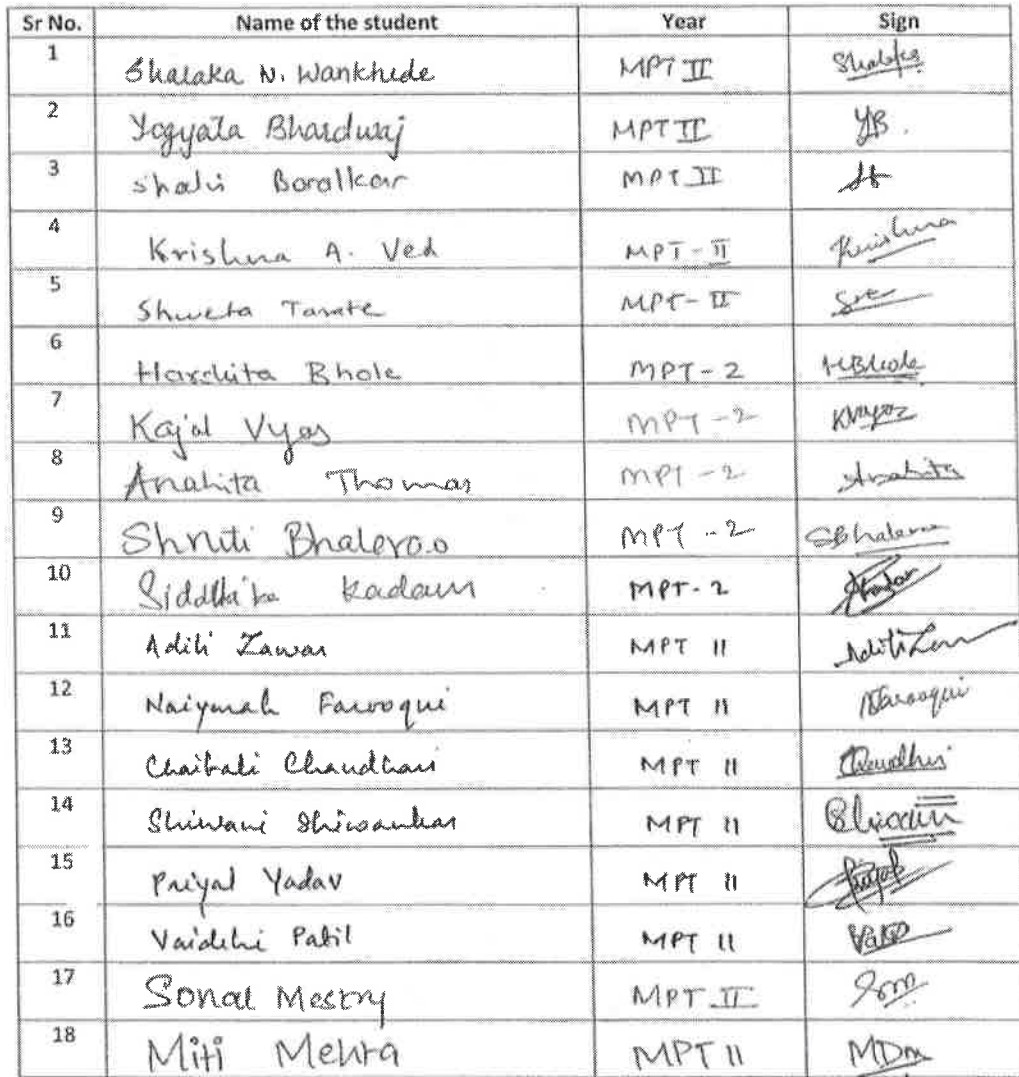 Sr No. Name of the student Year Sign
1 Shalaka N. Wankhede MPT II Shalaka
2 Yogyata Bhardwaj MPT II YB.
3 Shalvi Boralkar MPT II
4 Krishna A. Ved MPT-II Krishna
5 Shweta Tarate MPT-II
6 Harshita Bhole MPT-2 HBhole
7 Kajal Vyas MPT-2 KVyas
8 Anahita Thomas MPT-2 Anahita
9 Shruti Bhalerao MPT-2 SBhalerao
10 Siddhika Kadam MPT-2
11 Aditi Zawar MPT II Aditi Zawar
12 Naiymah Farooqui MPT II NFarooqui
13 Chaitali Chaudhari MPT II
14 Shiwani Shiwankar MPT II
15 Priyal Yadav MPT II Priyal
16 Vaidehi Patil MPT II
17 Sonal Mestry MPT II
18 Miti Mehta MPT II MDM